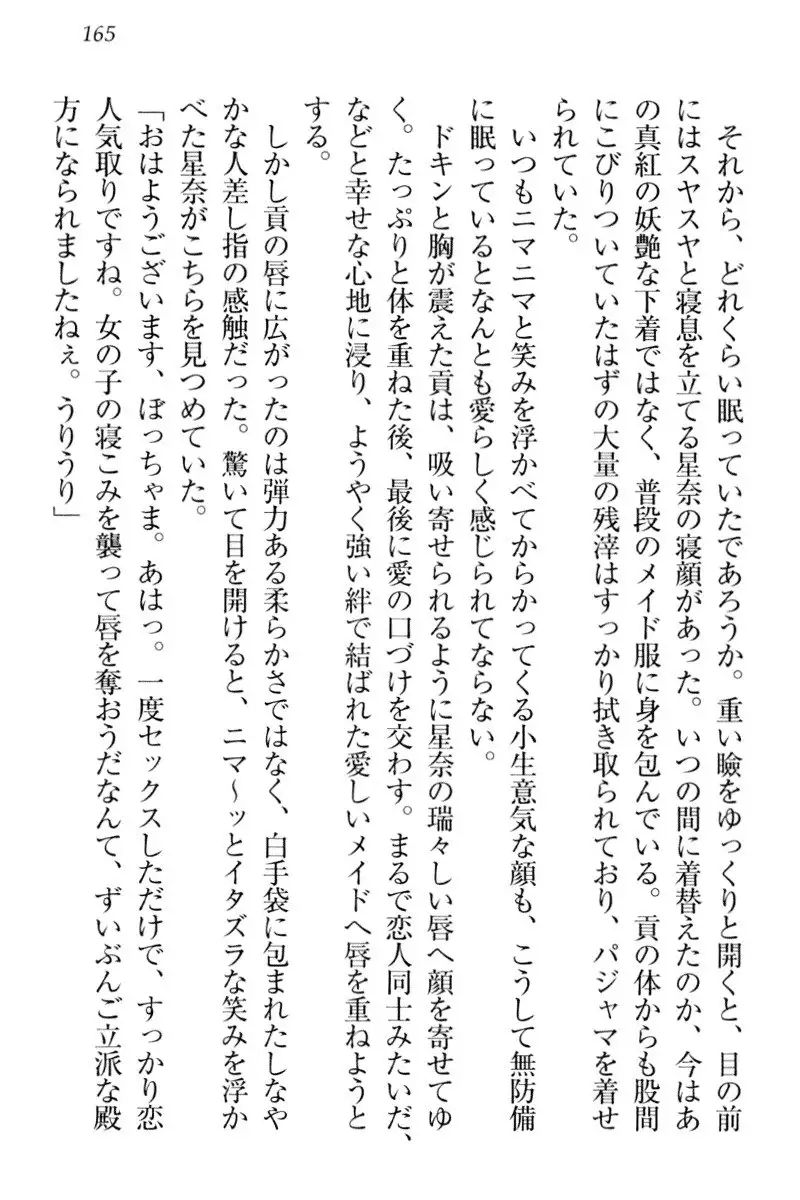 165
それから、どれくらい眠っていたであろうか。重い瞼をゆっくりと開くと、目の前
にはスヤスヤと寝息を立てる星奈の寝顔があった。いつの間に着替えたのか、今はあ
の真紅の妖艶な下着ではなく、普段のメイド服に身を包んでいる。貢の体からも股間
にこびりついていたはずの大量の残滓はすっかり拭き取られており、パジャマを着せ
られていた。
いつもニマニマと笑みを浮かべてからかってくる小生意気な顔も、こうして無防備
に眠っているとなんとも愛らしく感じられてならない。
ドキンと胸が震えた貢は、吸い寄せられるように星奈の瑞々しい唇へ顔を寄せてゆ
く。たっぷりと体を重ねた後、最後に愛の口づけを交わす。まるで恋人同士みたいだ、
などと幸せな心地に浸り、ようやく強い絆で結ばれた愛しいメイドへ唇を重ねようと
する。
しかし貢の唇に広がったのは弾力ある柔らかさではなく、白手袋に包まれたしなや
かな人差し指の感触だった。驚いて目を開けると、ニマ～ッとイタズラな笑みを浮か
べた星奈がこちらを見つめていた。
「おはようございます、ぼっちゃま。あはっ。一度セックスしただけで、すっかり恋
人気取りですね。女の子の寝こみを襲って唇を奪おうだなんて、ずいぶんご立派な殿
方になられましたねぇ。うりうり」